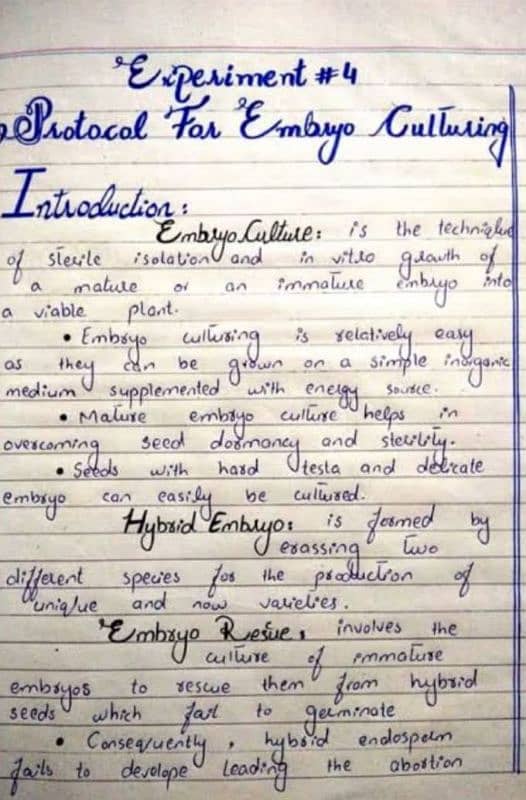 Experiment #4
Protocol For Embryo Culturing
Introduction:
Embryo Culture: is the technique
of sterile isolation and in vitro growth of
a mature or an immature embryo into
a viable plant.
• Embryo culturing is relatively easy
as they can be grown on a simple inorganic
medium supplemented with energy source.
• Mature embryo culture helps in
overcoming seed dormancy and sterility.
• Seeds with hard testa and delicate
embryo can easily be cultured.
Hybrid Embryo: is formed by
crassing two
different species for the production of
unique and now varieties.
Embryo Resue: involves the
culture of immature
embryos to rescue them from hybrid
seeds which fail to germinate
• Consequently, hybrid endosperm
fails to develope leading the abortion